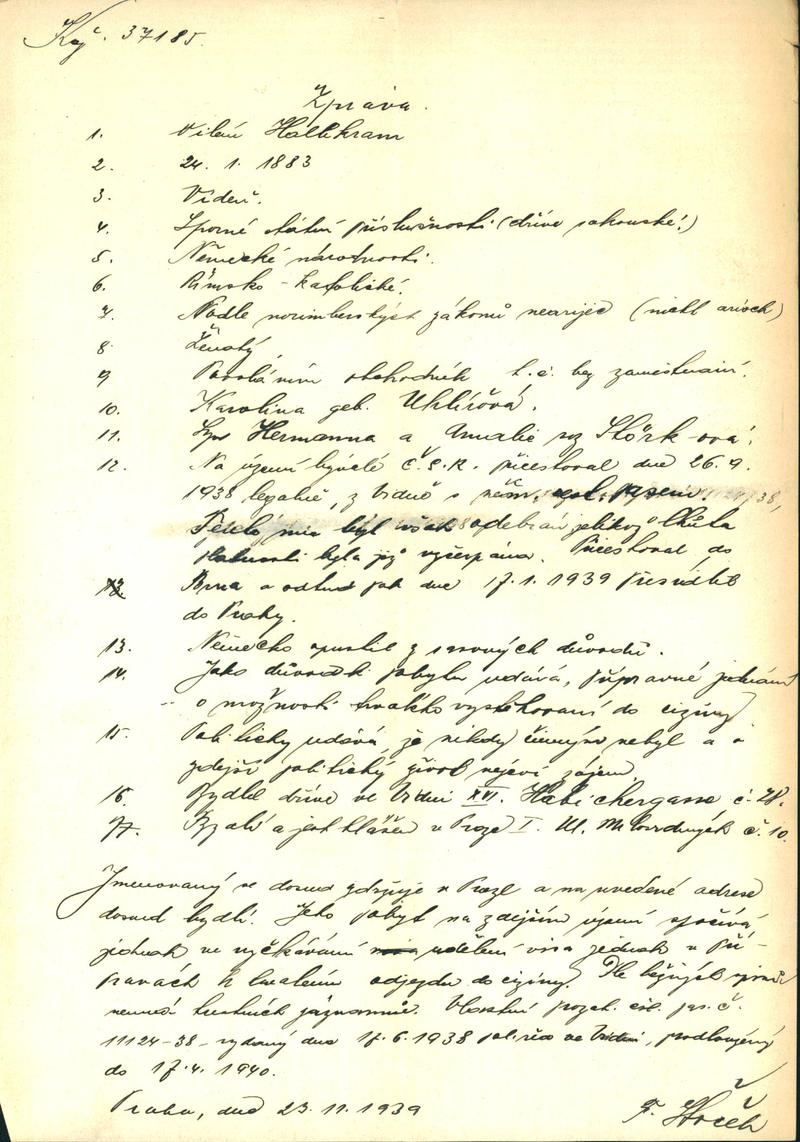 37185.
Zpráva.
1. Vilém
2. 24. 1. 1883
3. Vídeň.
4. Sporné státní příslušnosti (dříve rakouské!)
5. Německé národnosti.
6. Římsko-katolické.
7. Podle norimberských zákonů nearijec (nicht arisch)
8 Ženatý
9 Povoláním obchodník t.č. bez zaměstnání.
10. Karolina geb. Uhlířová.
11. Syn Hermanna a Amalie roz Störk-ová.
12. Na území bývalé Č.S.R. přicestoval dne 26.9.
1938 legálně, z Vídně s
mu byl však odebrán jelikož lhůta
platnosti byla již vyčerpána. Přicestoval do
Brna a odtud pak dne 17.1. 1939 přesídlil
do Prahy.
13. Německo opustil z rasových důvodů.
14. Jako důvod pobytu udává, přípravné jednání
o možnosti trvalého vystěhování do ciziny
15. Politicky udává, že nikdy činným nebyl a o
zdejší politický život nejeví zájem.
16. Bydlel dříve ve Vídni XVI. č.
17. Bydlí a jest hlášen v Praze I. Ul. Milosrdných č. 10.
Jmenovaný se dosud zdržuje v Praze a na uvedené adrese
dosud bydlí. Jeho pobyt na zdejším území spočívá
jednak ve vyčkávání udělení visa jednak v pří-
pravách k trvalému odjezdu do ciziny. Dle
nemá trestních záznamů. Vlastní pas č.
11124-38 vydaný dne 17.6.1938 pol. řed ve Vídni, prodloužený
do 17.4. 1940.
Praha, dne 23. 11. 1939